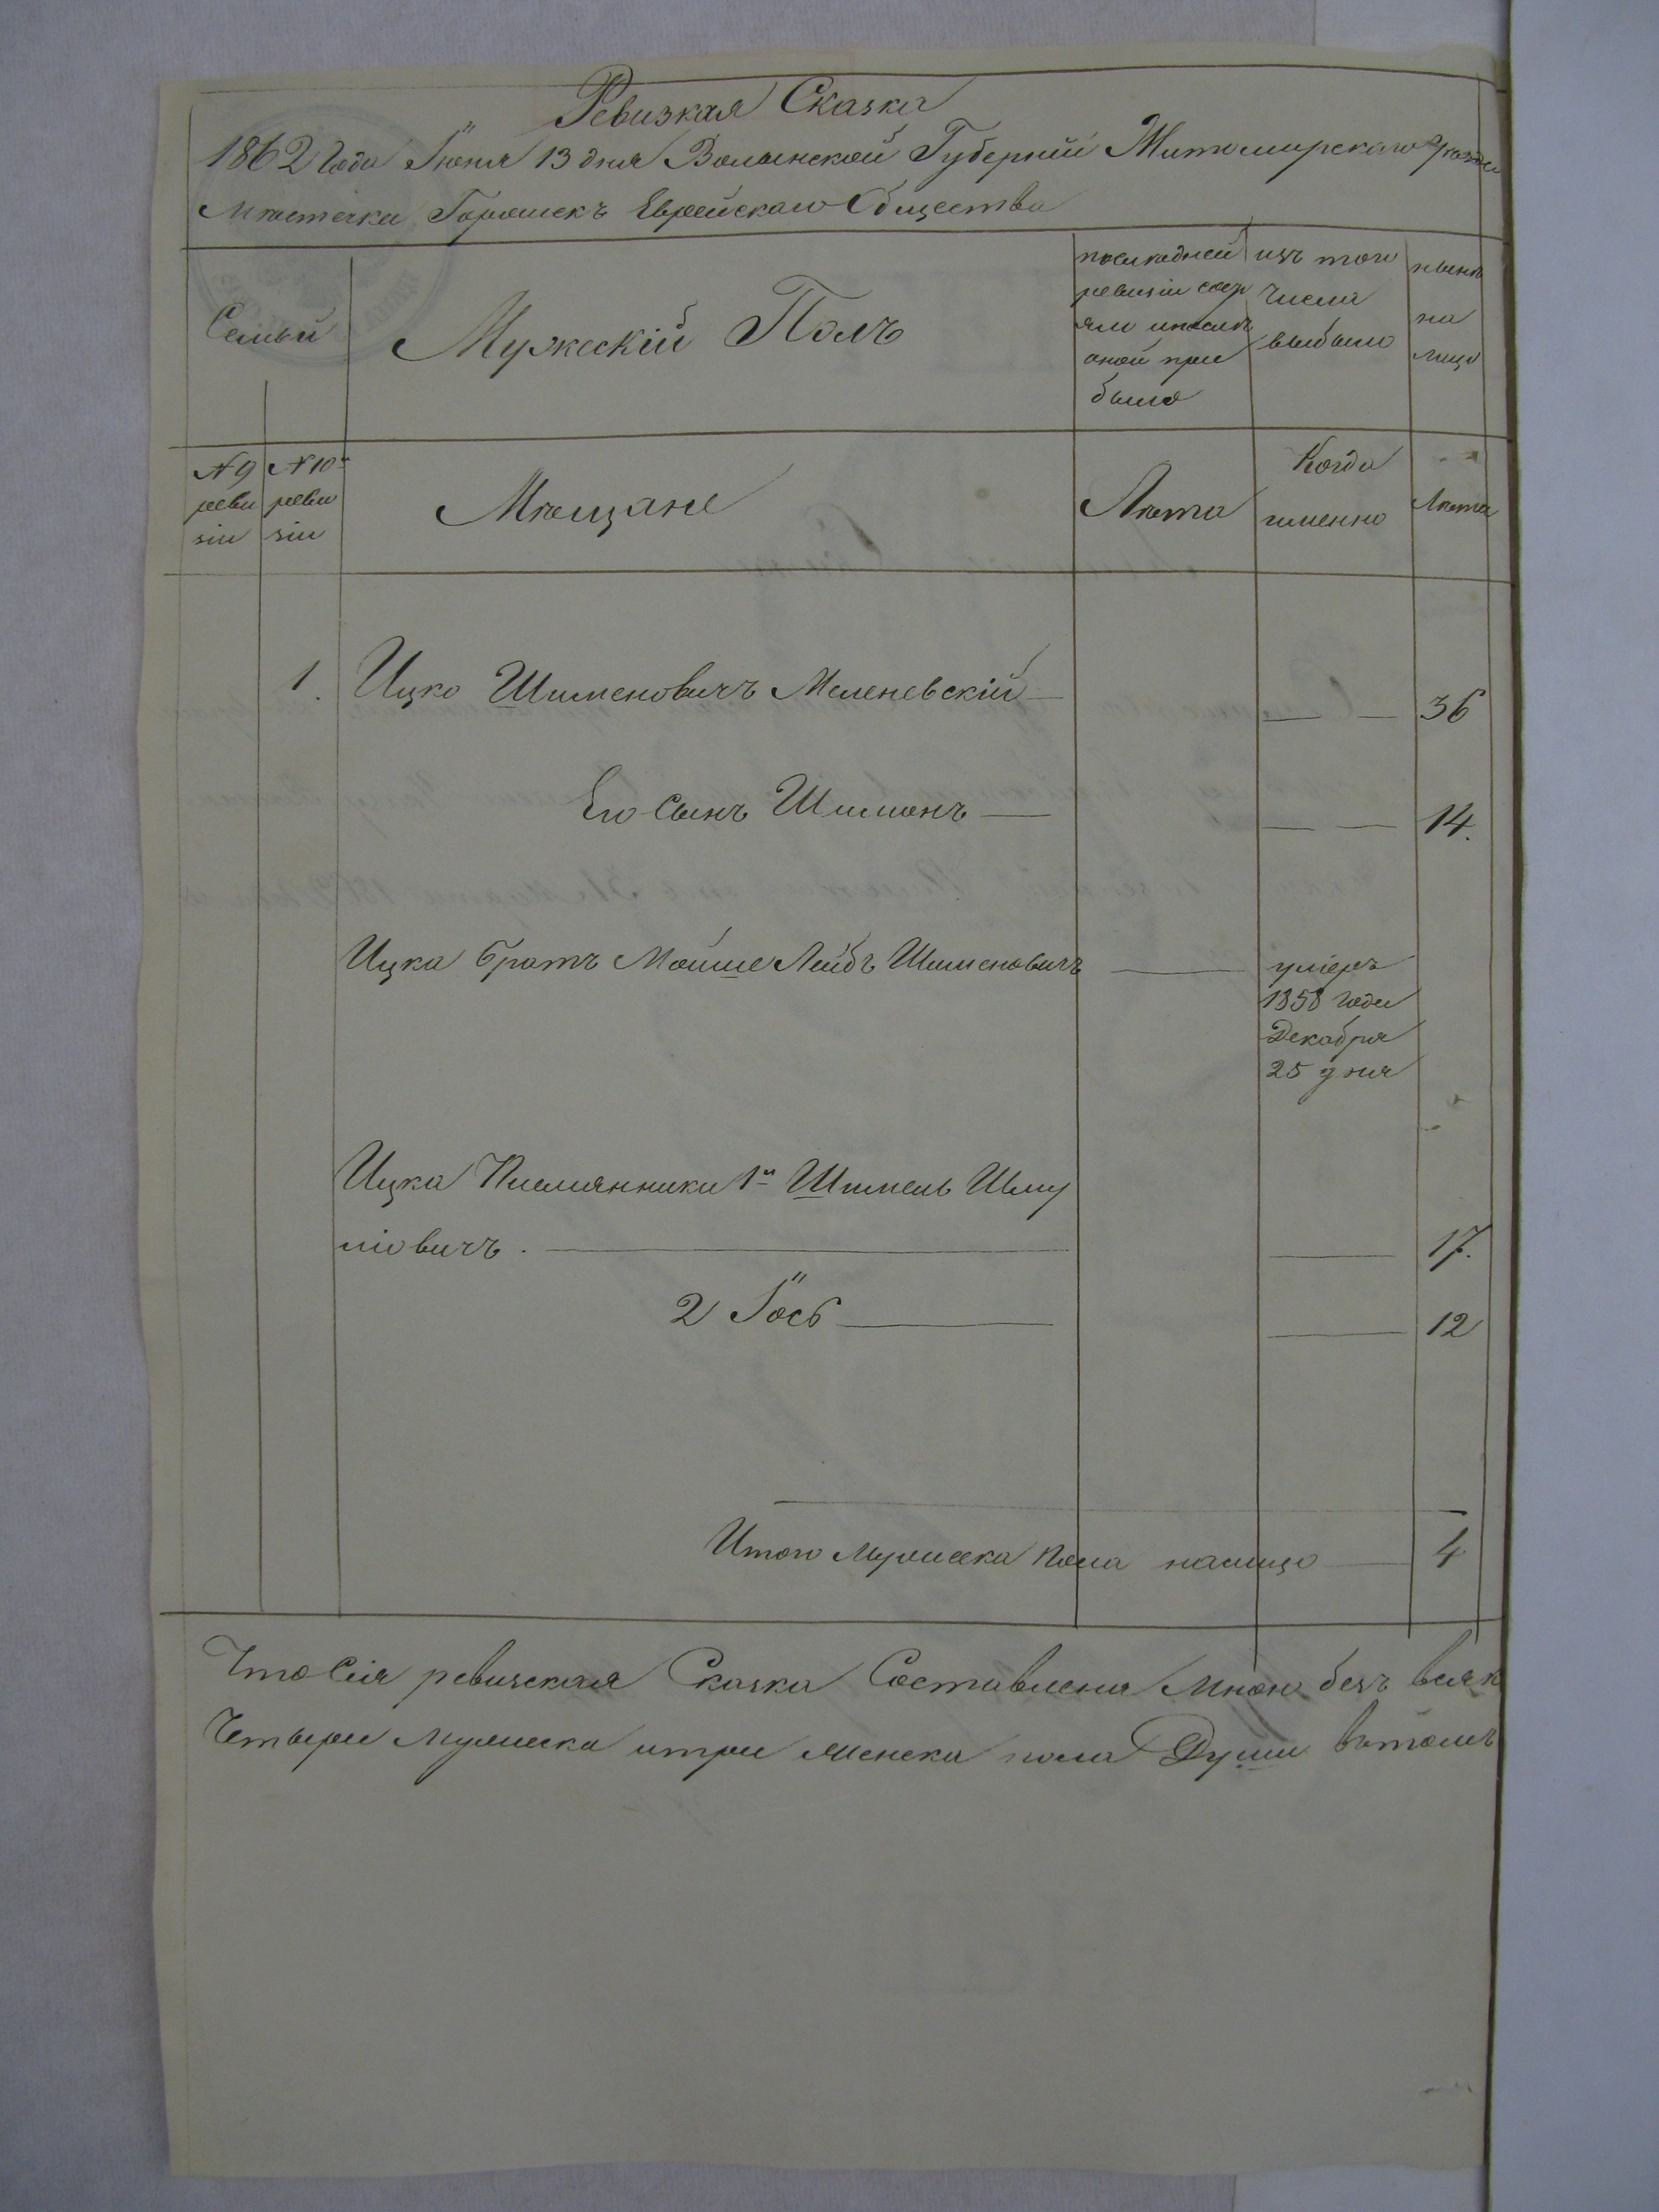 Ревизкая Сказка
1862 Года Іюня 13 дня Волынской Губерніи Житомирскаго уезда
Мѣстечка Горошекъ Еврейскаго Общества
Семьи
Мужескій Полъ
последней ревизіи
было
изъ того числа выбыло
нынѣ на лицо
№ 9 реви зіи
№ 10 реви зіи
Мѣщане
Лѣта
Когда именно
Лѣта
1. Ицко Шименовичъ Меленевскій — — — 36
Его Сынъ Шимонъ — — — 14.
Ицка братъ Мойше Лейбъ Шименовичъ — умеръ
1858 года
Декабря
25 дня
Ицка Племянники 1й Шимель Шму
ліовичъ. — — 17.
2 Іось — — 12
Итого Мужеска пола налицо — 4
Что Сія ревизская Сказка Составлена Мною безъ всяк
Четыри Мужеска итри Женска пола Души вътомъ